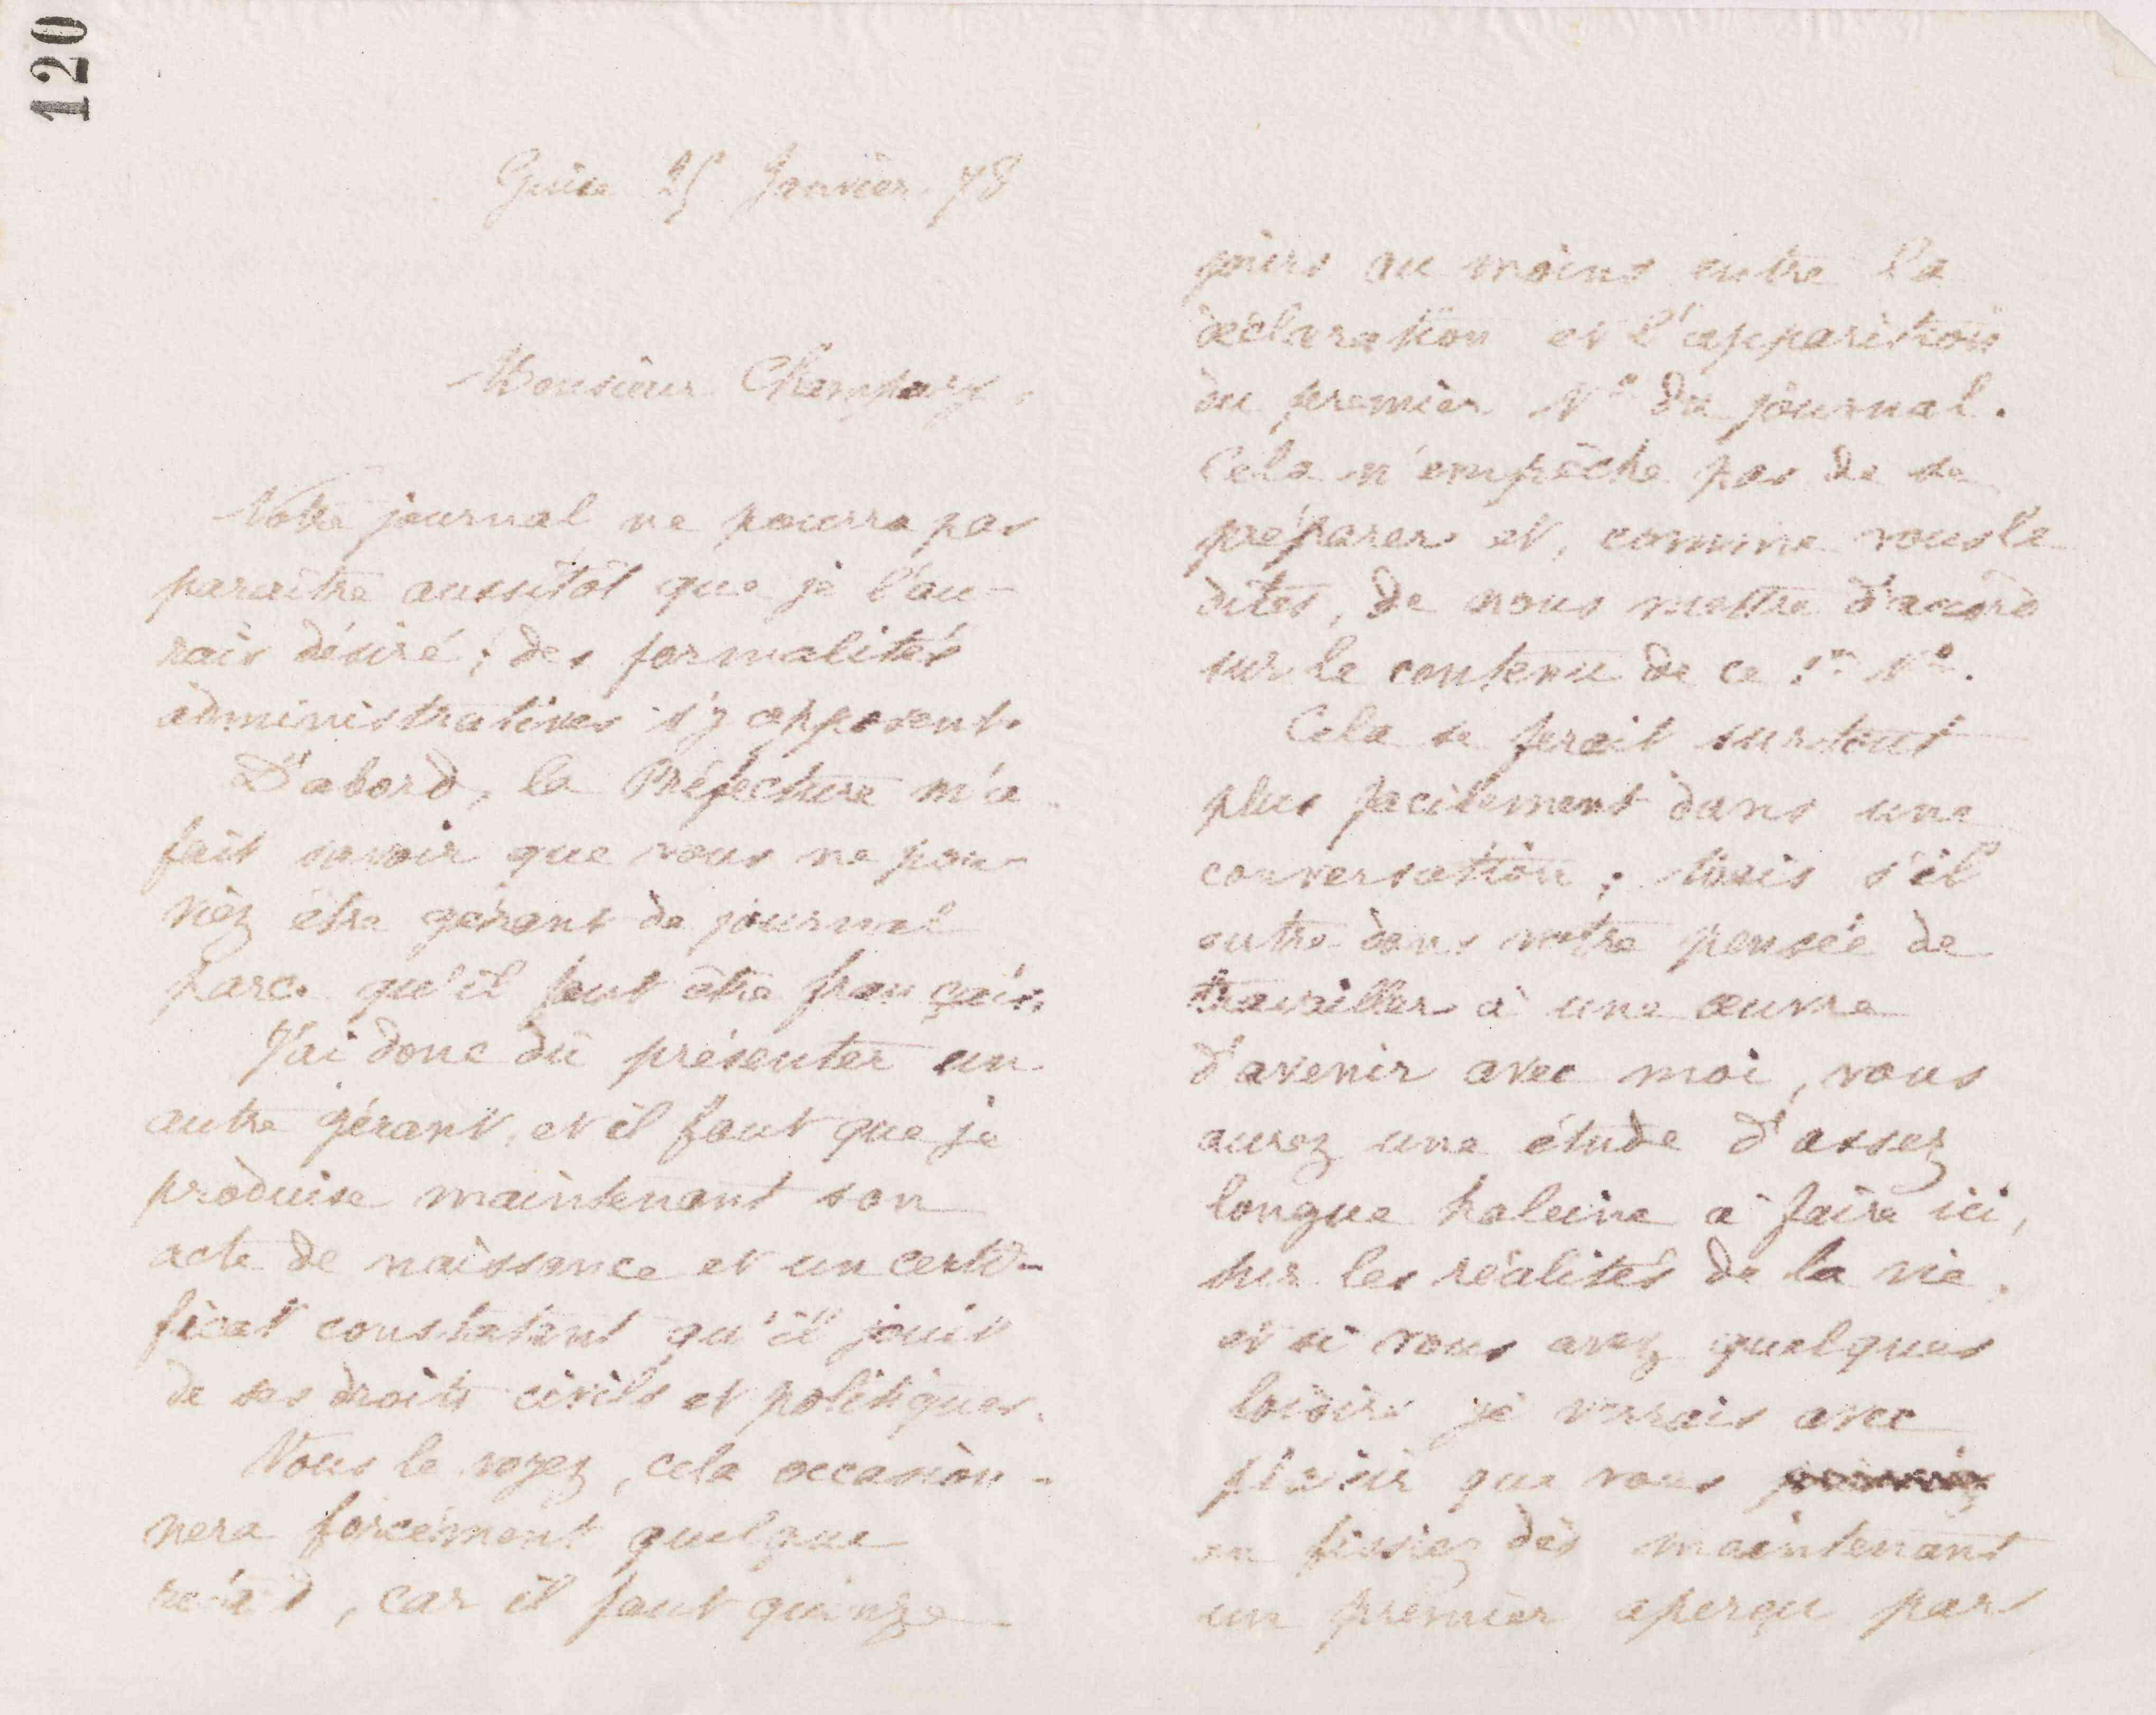 120
Guise 25 Janvier 78
Monsieur Champury,
Notre journal ne pourra pas
paraître aussitôt que je l'au-
rais désiré; des formalités
administratives s'y opposent.
D'abord, la Préfecture m'a
fait savoir que vous ne pou-
viez être gérant de journal
parce qu'il faut être français.
J'ai donc dû présenter un
autre gérant, et il faut que je
produise maintenant son
acte de naissance et un certi-
ficat constatant qu'il jouit
de ses droits civils et politiques.
Vous le voyez, cela occasion-
nera forcément quelque
retard, car il faut quinze
jours au moins entre la
déclaration et l'apparition
du premier N° du journal.
Cela n'empêche pas de se
préparer et, comme vous le
dites, de nous mettre d'accord
sur le contenu de ce 1er N°.
Cela se ferait surtout
plus facilement dans une
conversation; mais s'il
entre dans votre pensée de
travailler à une œuvre
d'avenir avec moi, vous
aurez une étude d'assez
longue haleine à faire ici,
sur les réalités de la vie.
et si vous avez quelques
loisirs je verrais avec
plaisir que vous
en fissiez dès maintenant
un premier aperçu par